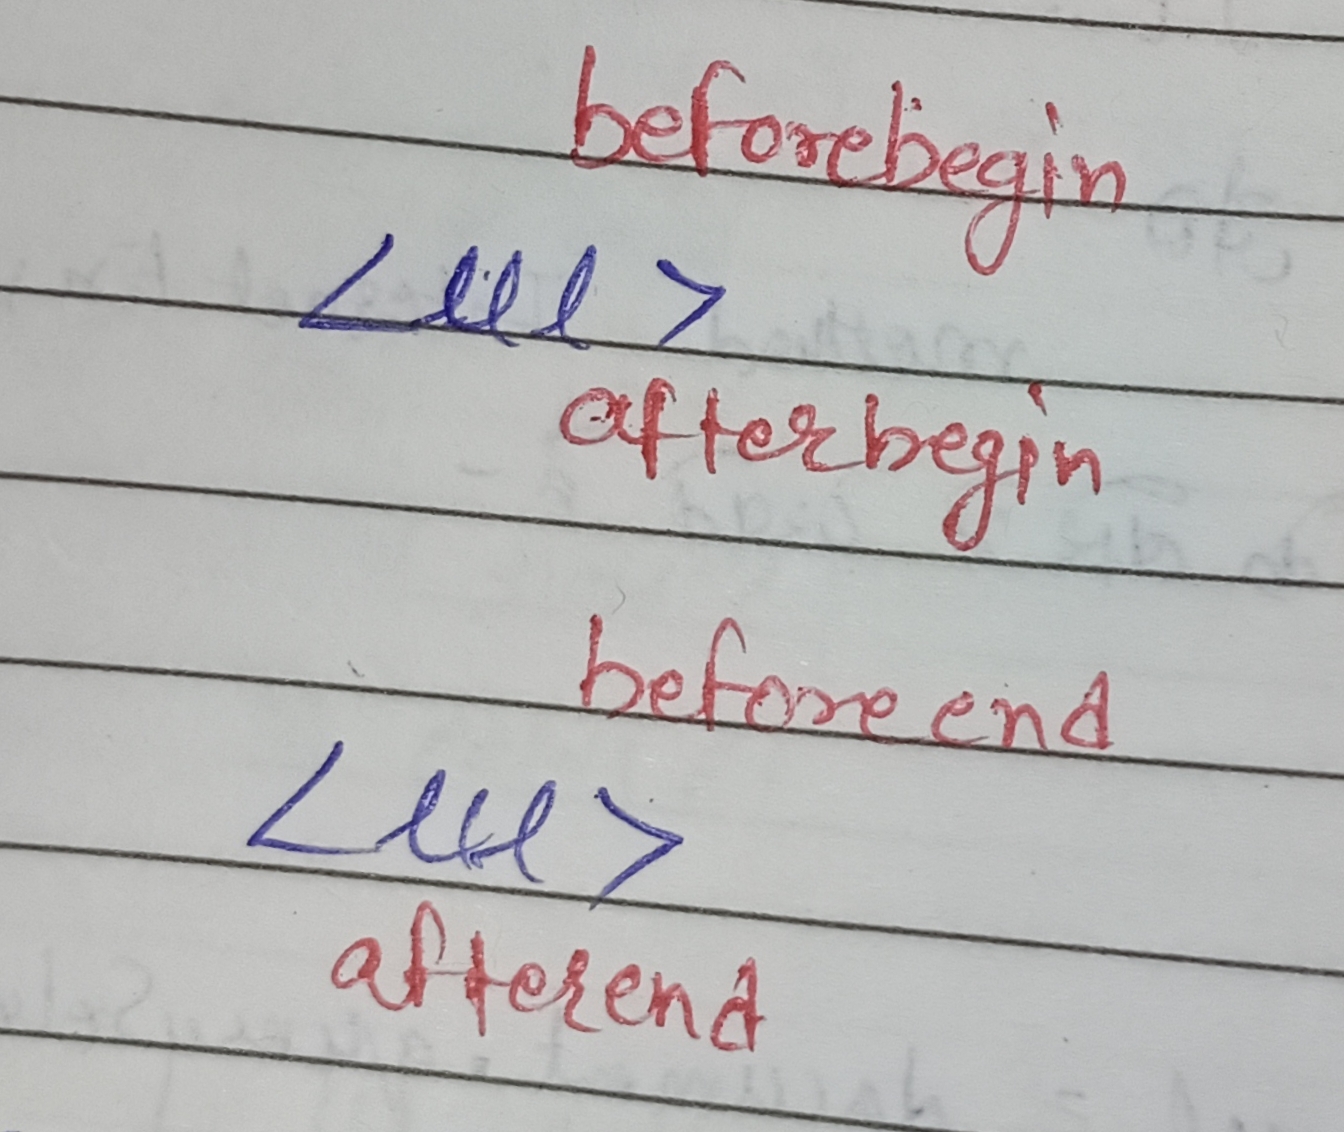 beforebegin
<lll>
afterbegin
beforeend
<lll>
afterend